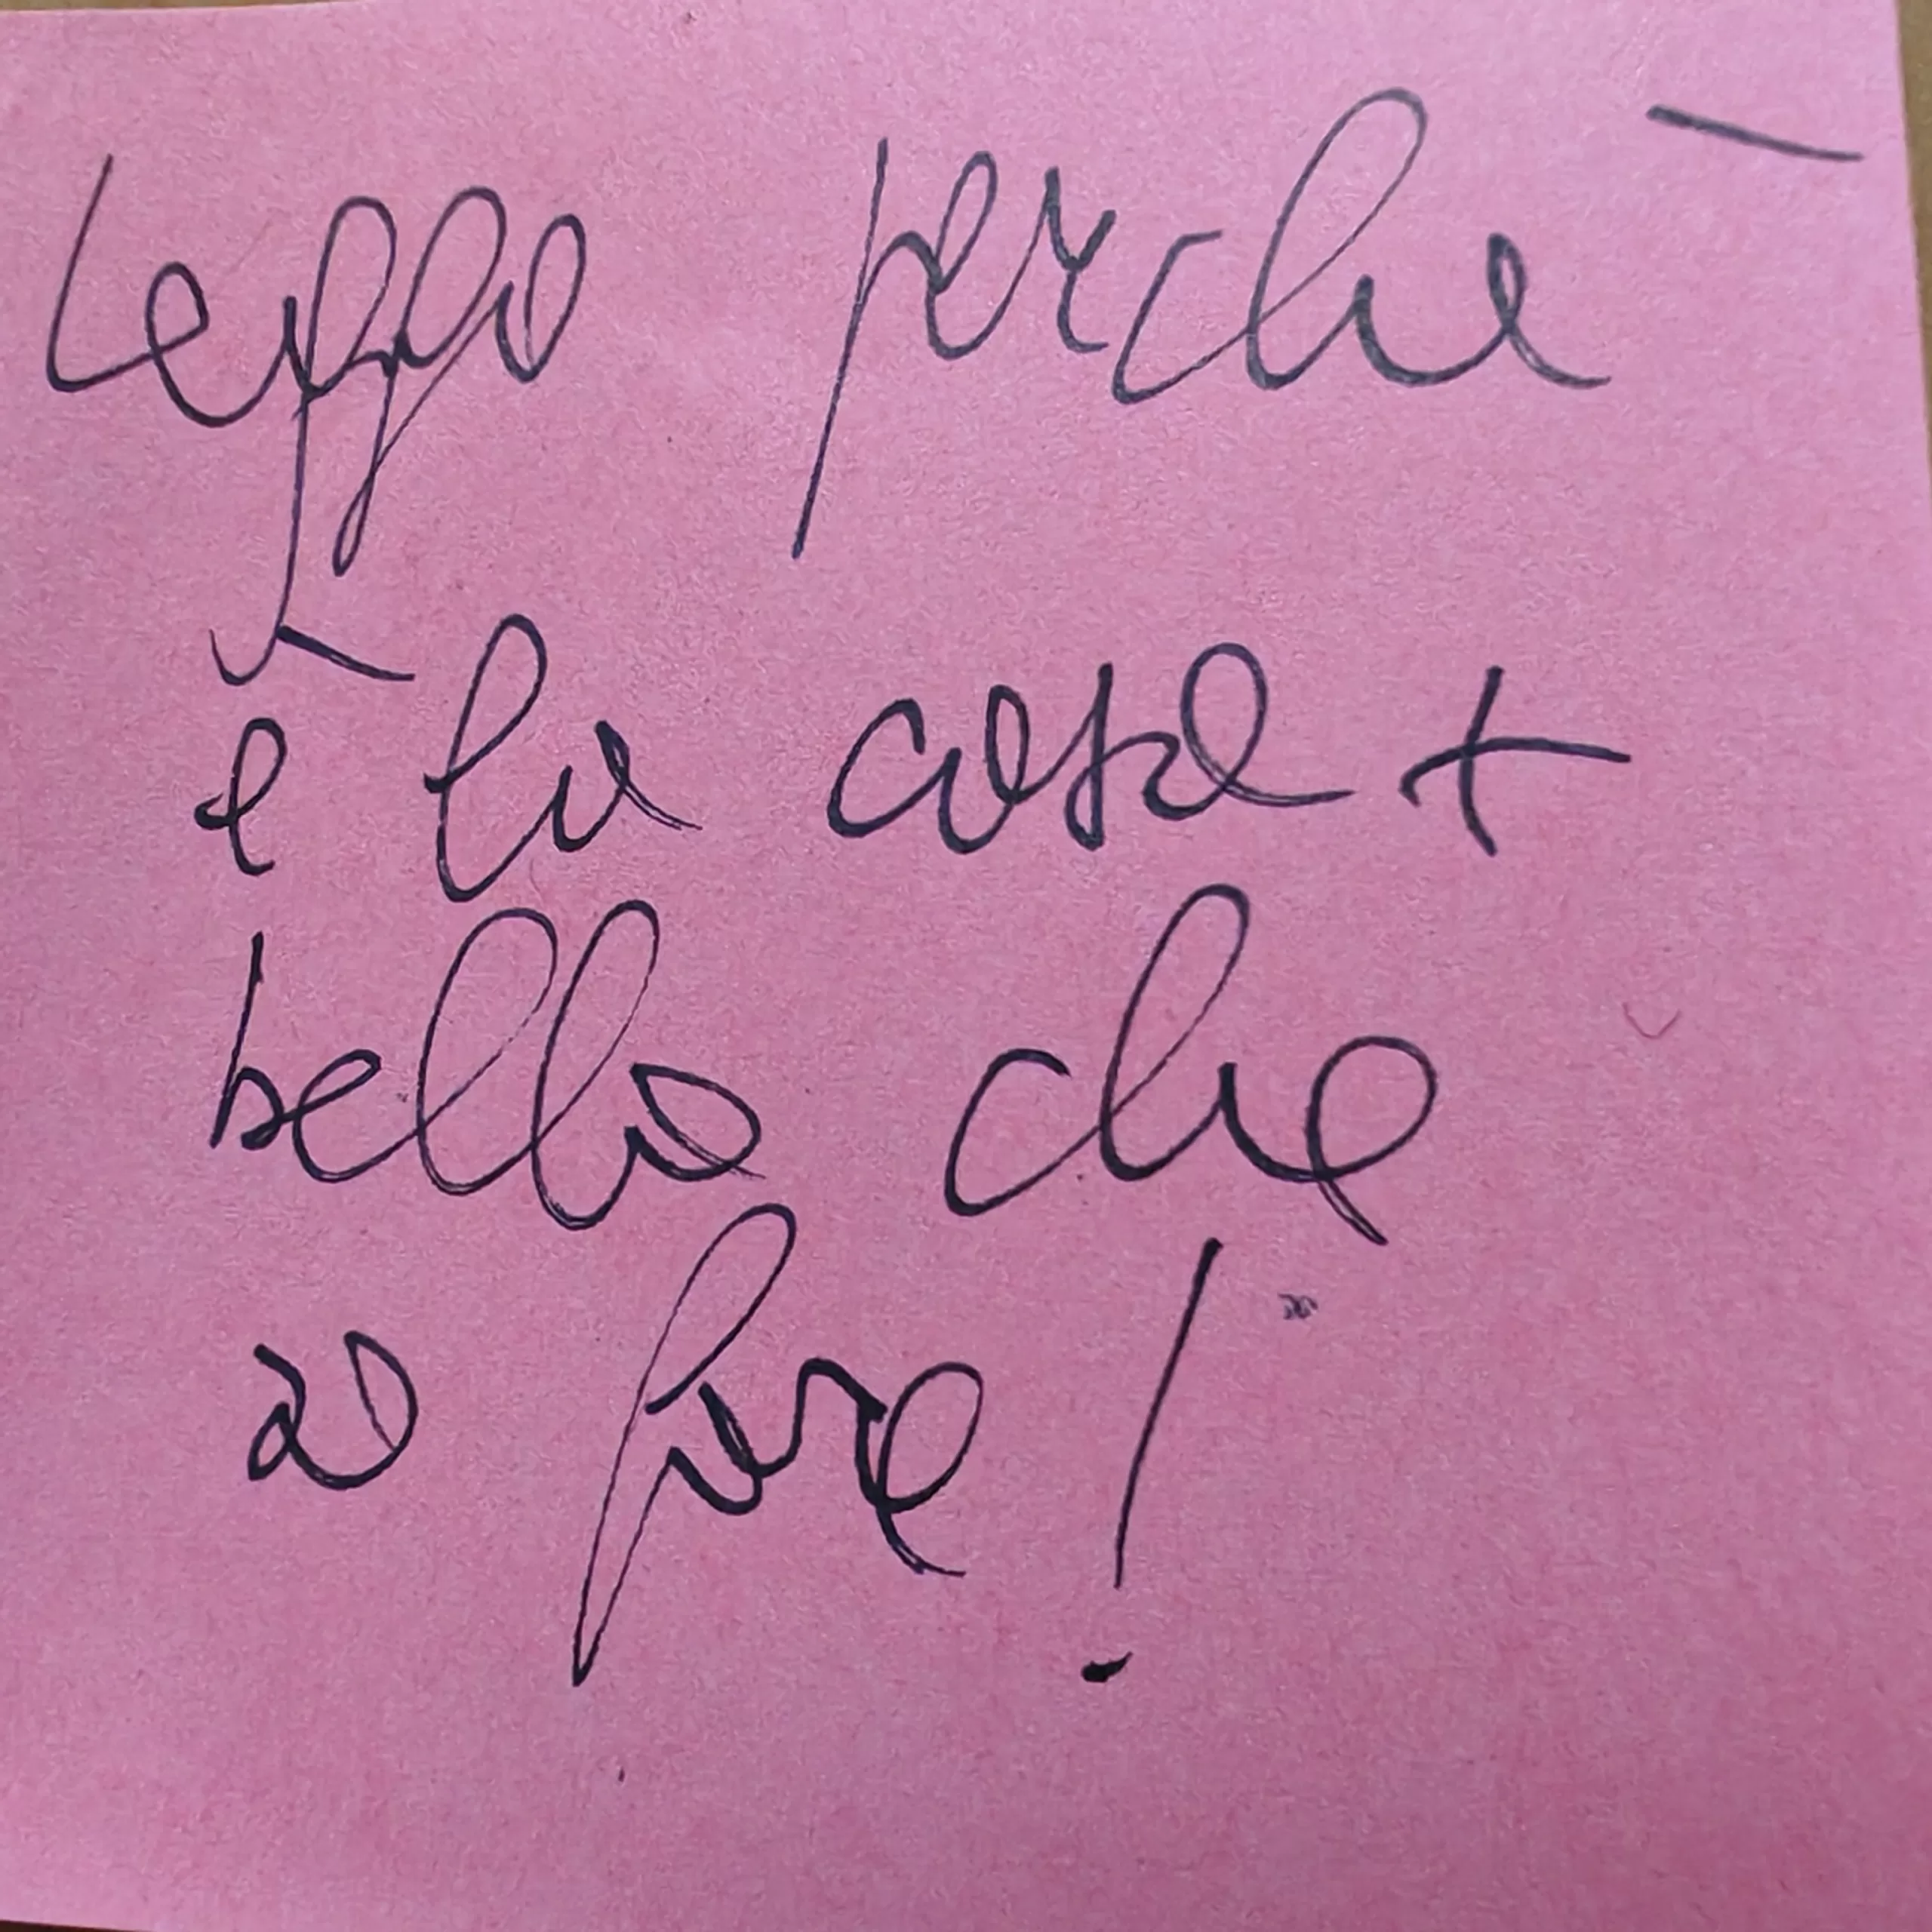 Leggo perchè
è la cosa +
bella che
so fare!